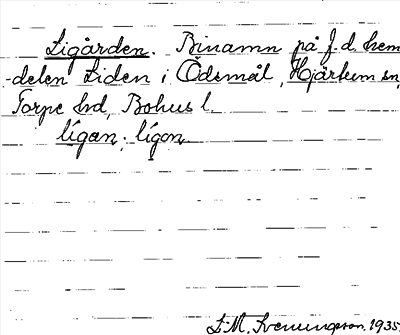 Ligården. Binamn på f.d. hem-
delen Liden i Ödsmål, Hjärtum sn,
Torpe hd, Bohus l.
lígan; lígon
S.M. Svenungsson. 1935.